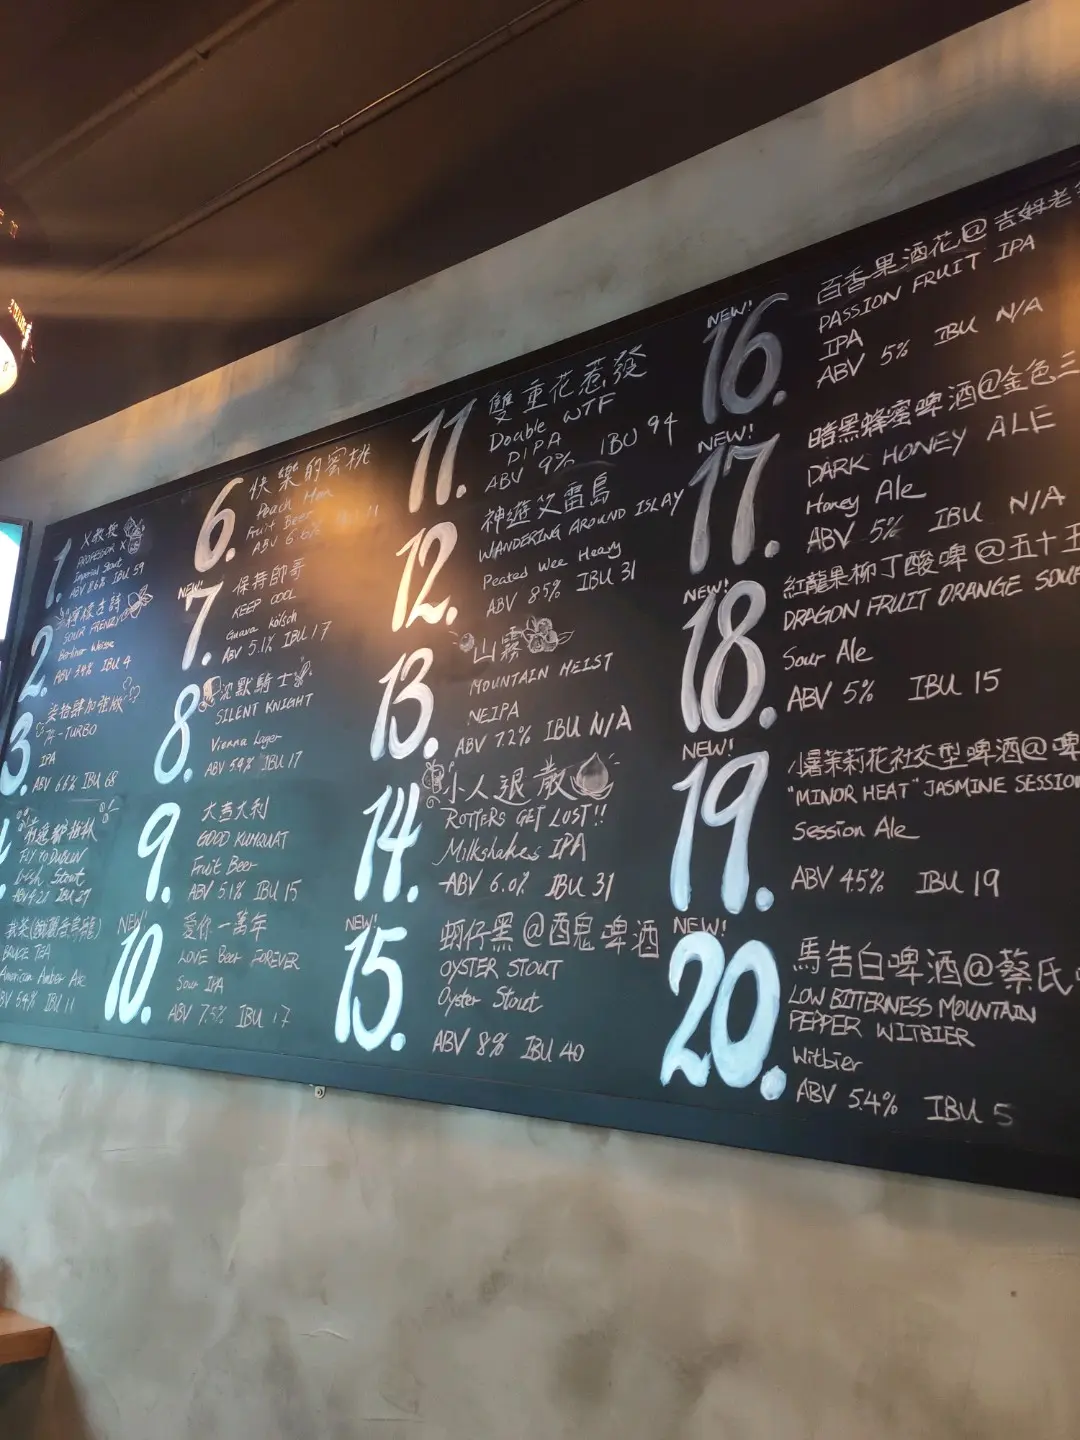 1.
X教授
PROFESSOR X
Imperial Stout
ABV 8.6% IBU 59
2.
SOUR FRENZY
Berliner Weisse
ABV 3.4% IBU 4
3.
柒拾肆加強版
74-TURBO
IPA
ABV 6.6% IBU 68
FLY TO DUBLIN
Irish Stout
ABV 4.2% IBU 27
BRUCE TEA
American Amber Ale
ABV 5.4% IBU 11
6.
快樂的蜜桃
Peach Man
Fruit Beer
NEW!
7.
保持帥哥
KEEP COOL
Guava Kölsch
ABV 5.1% IBU 17
8.
沉默騎士
SILENT KNIGHT
Vienna Lager
ABV 5.4% IBU 17
9.
大吉大利
GOOD KUMQUAT
Fruit Beer
ABV 5.1% IBU 15
NEW!
10.
愛你一萬年
LOVE Beer FOREVER
Sour IPA
ABV 7.5% IBU 17
11.
雙重花惹發
Double WTF
DIPA
ABV 9% IBU 94
12.
神遊艾雷島
WANDERING AROUND ISLAY
Peated Wee Heavy
ABV 8.5% IBU 31
13.
山霧
MOUNTAIN MEIST
NEIPA
ABV 7.2% IBU N/A
14.
小人退散
ROTTERS GET LOST!!
Milkshakes IPA
ABV 6.0% IBU 31
NEW!
15.
蚵仔黑@酉鬼啤酒
OYSTER STOUT
Oyster Stout
ABV 8% IBU 40
NEW!
16.
百香果酒花@吉姆老
PASSION FRUIT IPA
IPA
ABV 5% IBU N/A
NEW!
17.
暗黑蜂蜜啤酒@金色三
DARK HONEY ALE
Honey Ale
ABV 5% IBU N/A
NEW!
18.
紅龍果柳丁酸啤@五十五
DRAGON FRUIT ORANGE SOUR
Sour Ale
ABV 5% IBU 15
NEW!
19.
小暑茉莉花社交型啤酒@啤
"MINOR HEAT" JASMINE SESSION
Session Ale
ABV 4.5% IBU 19
NEW!
20.
馬告白啤酒@蔡氏
LOW BITTERNESS MOUNTAIN
PEPPER WITBIER
Witbier
ABV 5.4% IBU 5